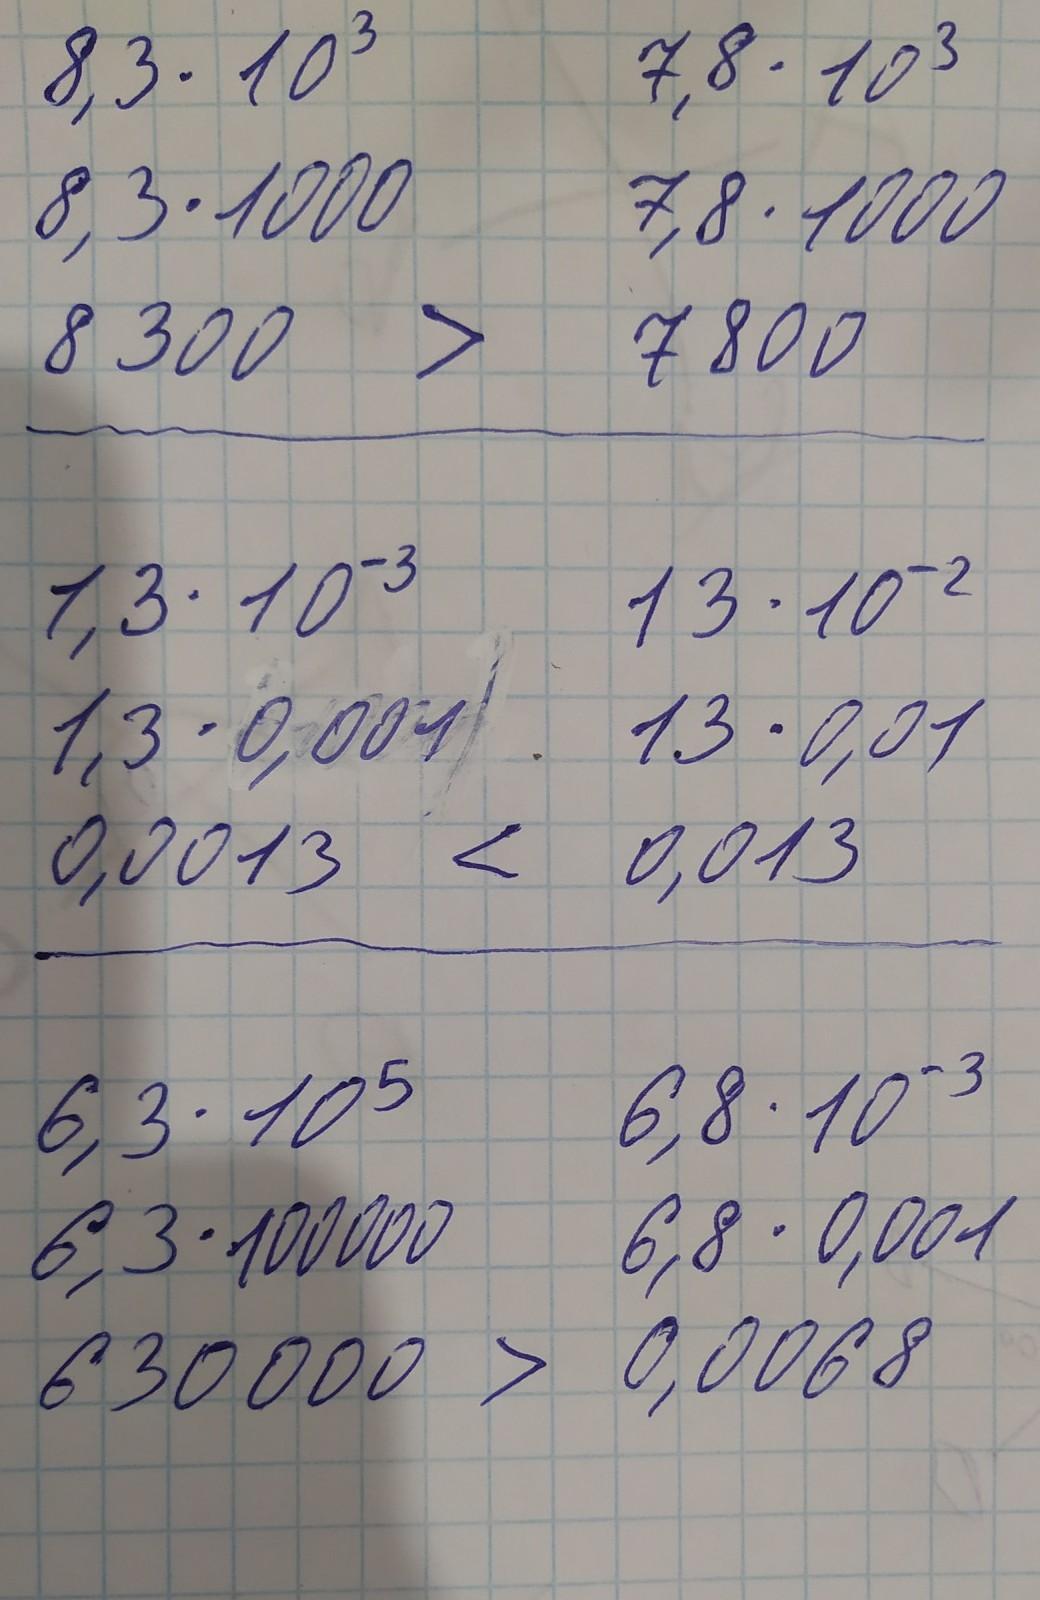 8,3 · 10³ 7,8 · 10³
8,3 · 1000 7,8 · 1000
8 300 > 7 800
1,3 · 10⁻³ 13 · 10⁻²
1,3 · 0,001 13 · 0,01
0,0013 < 0,013
6,3 · 10⁵ 6,8 · 10⁻³
6,3 · 100000 6,8 · 0,001
630 000 > 0,0068